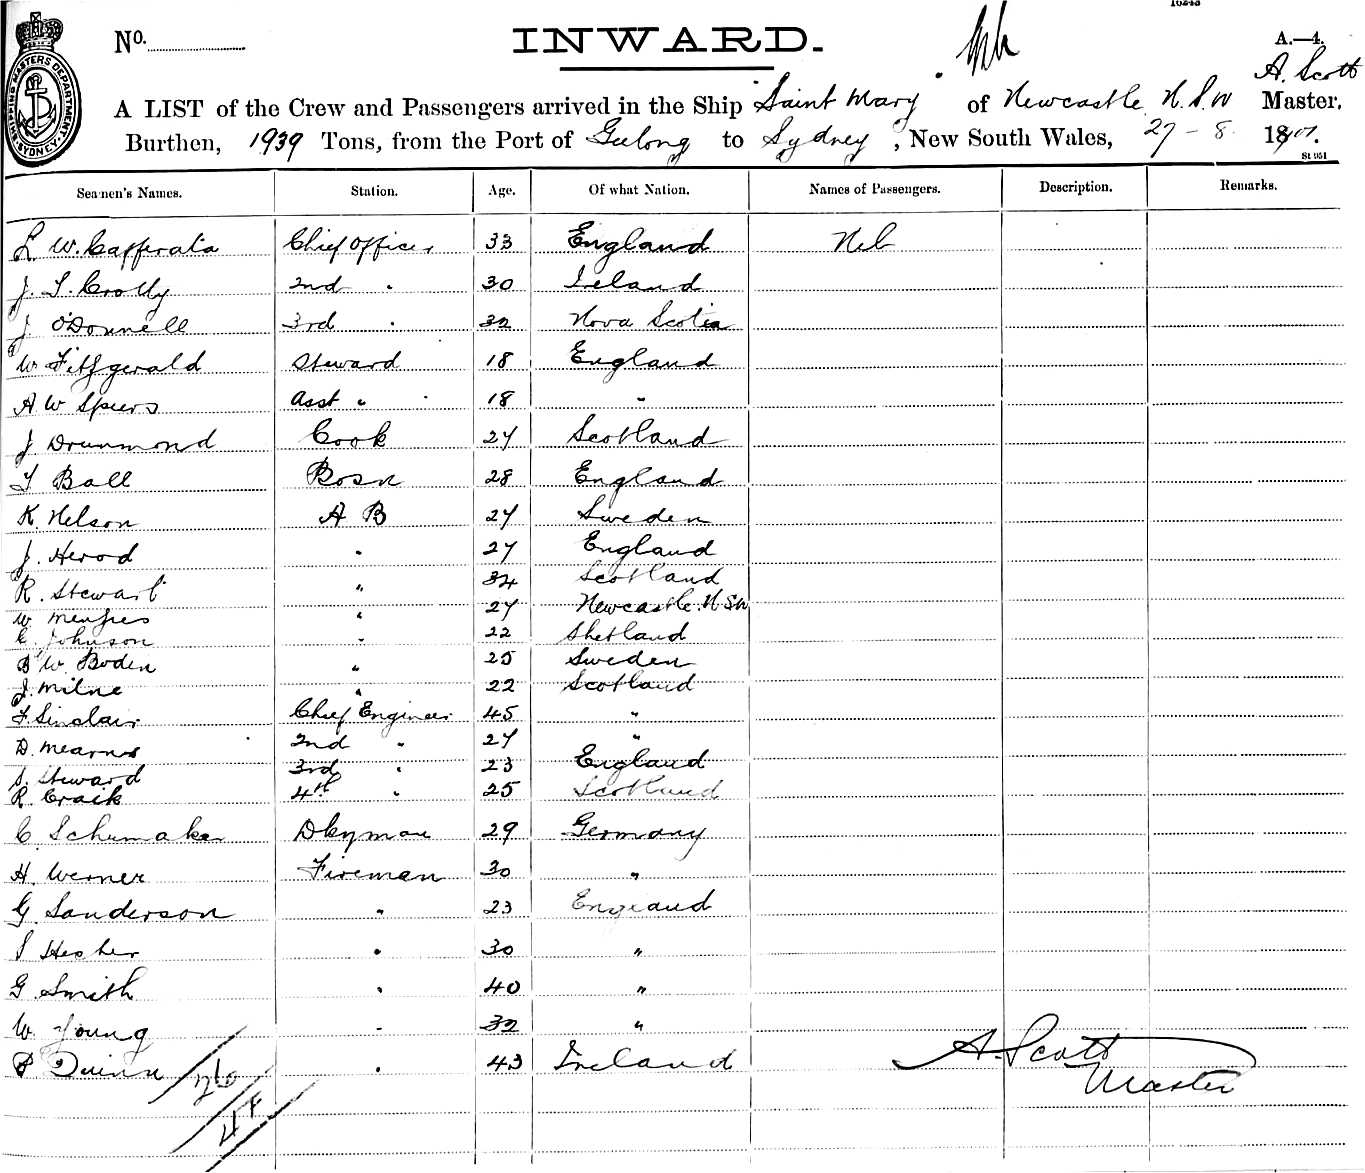 10243
No. INWARD. A.—4.
SHIPPING MASTERS DEPARTMENT SYDNEY
A. Scott
A LIST of the Crew and Passengers arrived in the Ship "Saint Mary" of Newcastle N.S.W Master,
Burthen, 1939 Tons, from the Port of Geelong to Sydney, New South Wales, 27-8 1901.
St 951
Seamen's Names. Station. Age. Of what Nation. Names of Passengers. Description. Remarks.
L W. Cafferata Chief Officer 33 England Nil
J. T. Crolly 2nd " 30 Ireland
J O'Donnell 3rd " 32 Nova Scotia
W Fitzgerald Steward 18 England
A W Spiers Asst " 18 "
J Drummond Cook 27 Scotland
T Ball Bosn 28 England
K. Nelson A B 27 Sweden
J. Herod " 27 England
R. Stewart " 34 Scotland
W Menzies " 27 Newcastle N SW
C. Johnson " 22 Shetland
B W. Boden " 25 Sweden
J. Milne " 22 Scotland
F. Sinclair Chief Engineer 45 "
D. Mearns 2nd " 27 "
S. Steward 3rd " 23 England
R. Craik 4th " 25 Scotland
C. Schumaker Dkyman 29 Germany
H. Werner Fireman 30 "
G. Sanderson " 23 England
" 30 "
G. Smith " 40 "
W. Young " 32 "
P Quinn " 43 Ireland
A. Scott
Master
26